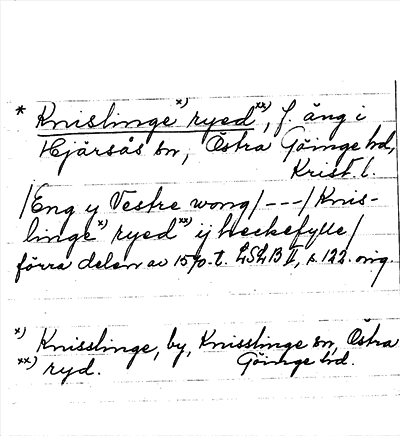 * Knislinge x) ryed xx), f. äng i
Hjärsås sn, Östra Göinge hd,
Krist. l.
/Eng y Vestre wong/ --- /Knis-
linge x) ryed xx) ij heckefylle/
förra delen av 1570-t. LSLB II, s. 122. orig.
x) Knisslinge, by, Knisslinge sn, Östra
Göinge hd.
xx) ryd.